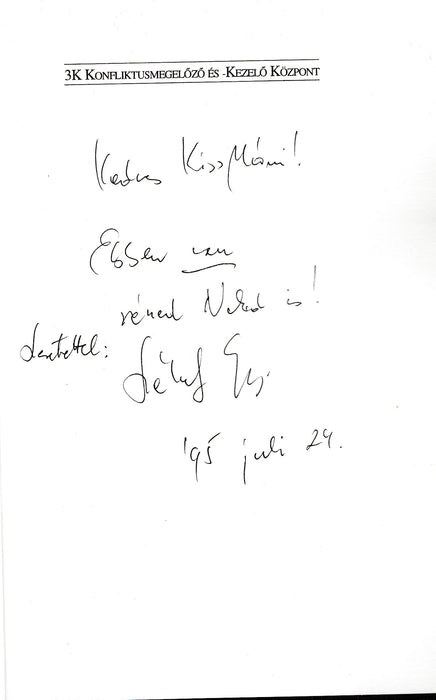 3K KONFLIKTUSMEGELŐZŐ ÉS -KEZELŐ KÖZPONT
Kedves Kiss Márni!
Ebben van
részed Neked is!
Szeretettel:
'95 juli 24.